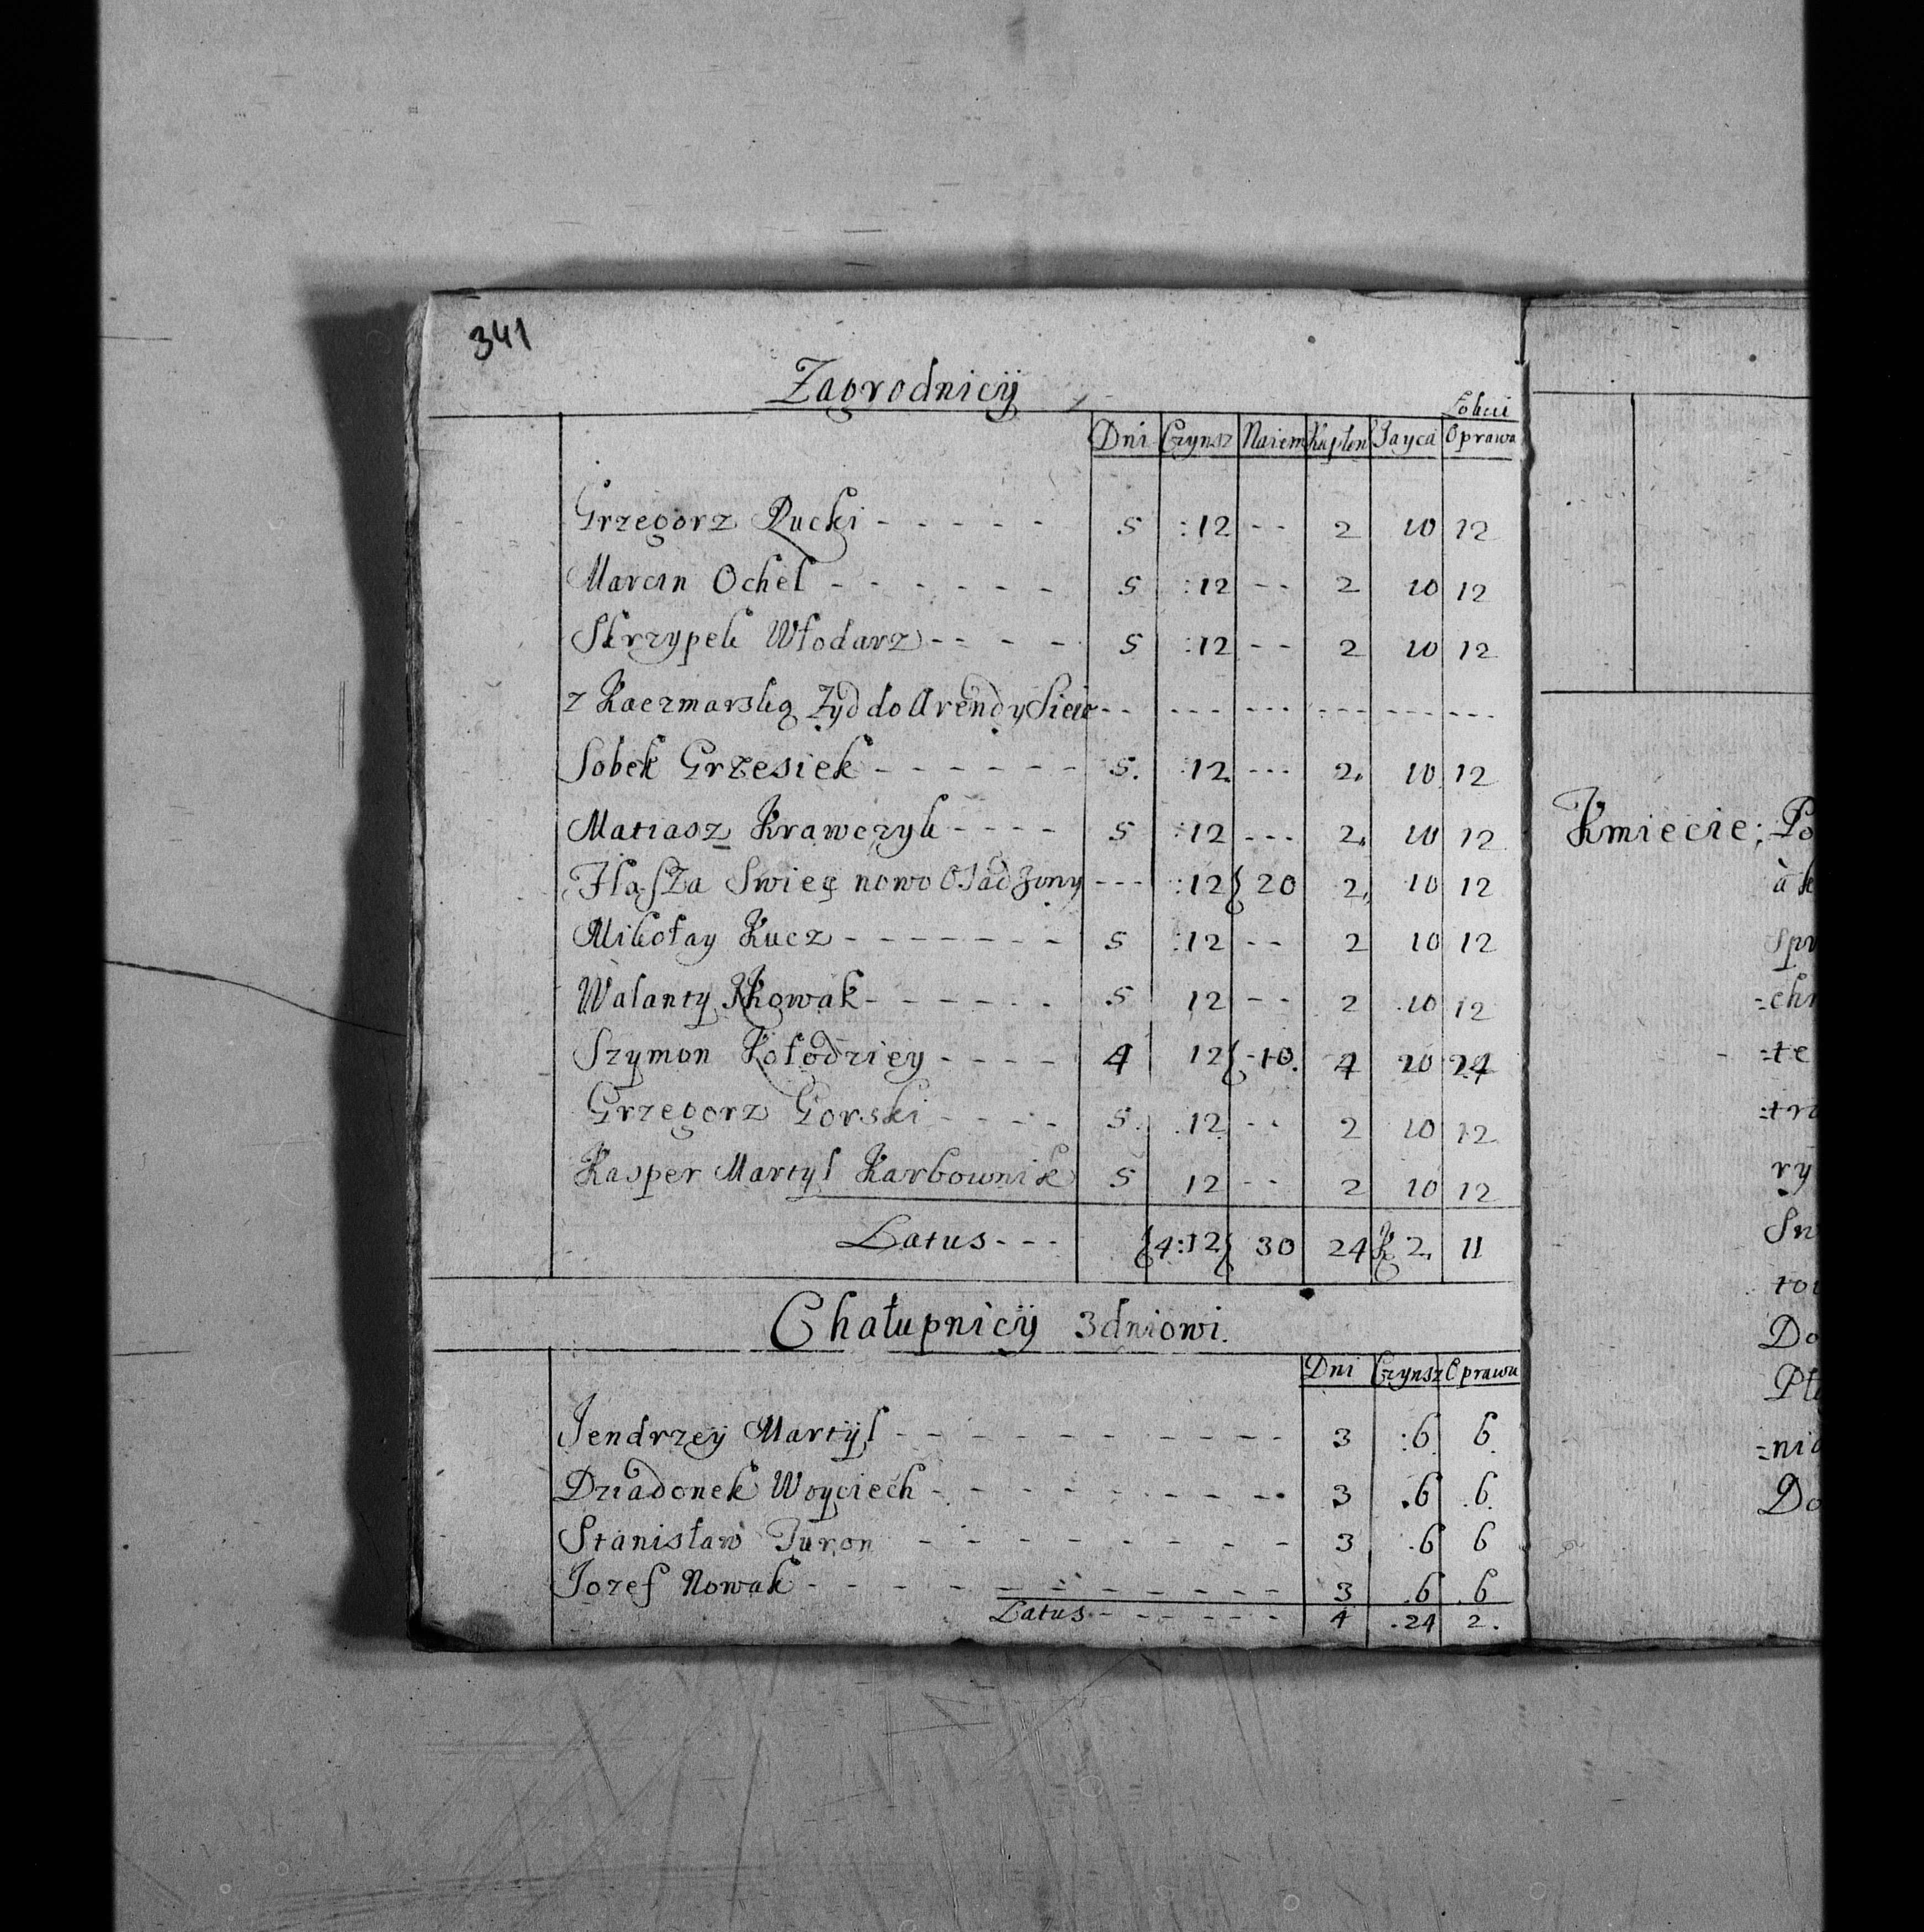 341
Zagrodnicÿ
Łokci
Dni Czynsz Naiem Kapłon Jayca Oprawa
Grzegorz Rucki - - - - - 5 :12 - - 2 10 12
Marcin Ochel - - - - - - 5 :12 - - 2 10 12
Skrzypek Włodarz - - - - 5 :12 - - 2 10 12
z Kaczmarską Zyd do Arendy - - - - - - - - - - - - - - - - -
Sobek Grzesiek - - - - - - 5. :12. - - - 2. 10 12
Matiasz Krawczyk - - - - 5 :12 - - - 2. 10 12
Swięc nowo Osadzony - - - :12 20 2. 10 12
Mikołay Kucz - - - - - - - 5 :12 - - 2 10 12
Walanty Nowak - - - - - - 5 12 - - 2 10 12
Szymon Kołodziey - - - - 4 12 - 10. 4 20 24
Grzegorz Gorski - - - - 5. 12 - - 2 10 12
Kasper Martyl Karbownik 5 12 - - 2 10 12
Latus - - - 4:12 30 24 2. 11
Chałupnicÿ 3dniowi.
Dni Czynsz Oprawa
Jendrzeÿ Martÿl - - - - - - - - - - - 3 :6 6.
Dziadonek Woyciech - - - - - - - - - 3 .6 .6.
Stanisław Turon - - - - - - - - - 3 .6 6
Jozef Nowak - - - - - - - - - - - 3 .6 6
Latus - - - - - - 4 .24 2.
Kmiecie; Po
à k
spr
=chn
=te
=trz
ry
Sn
Do
=nia
Do